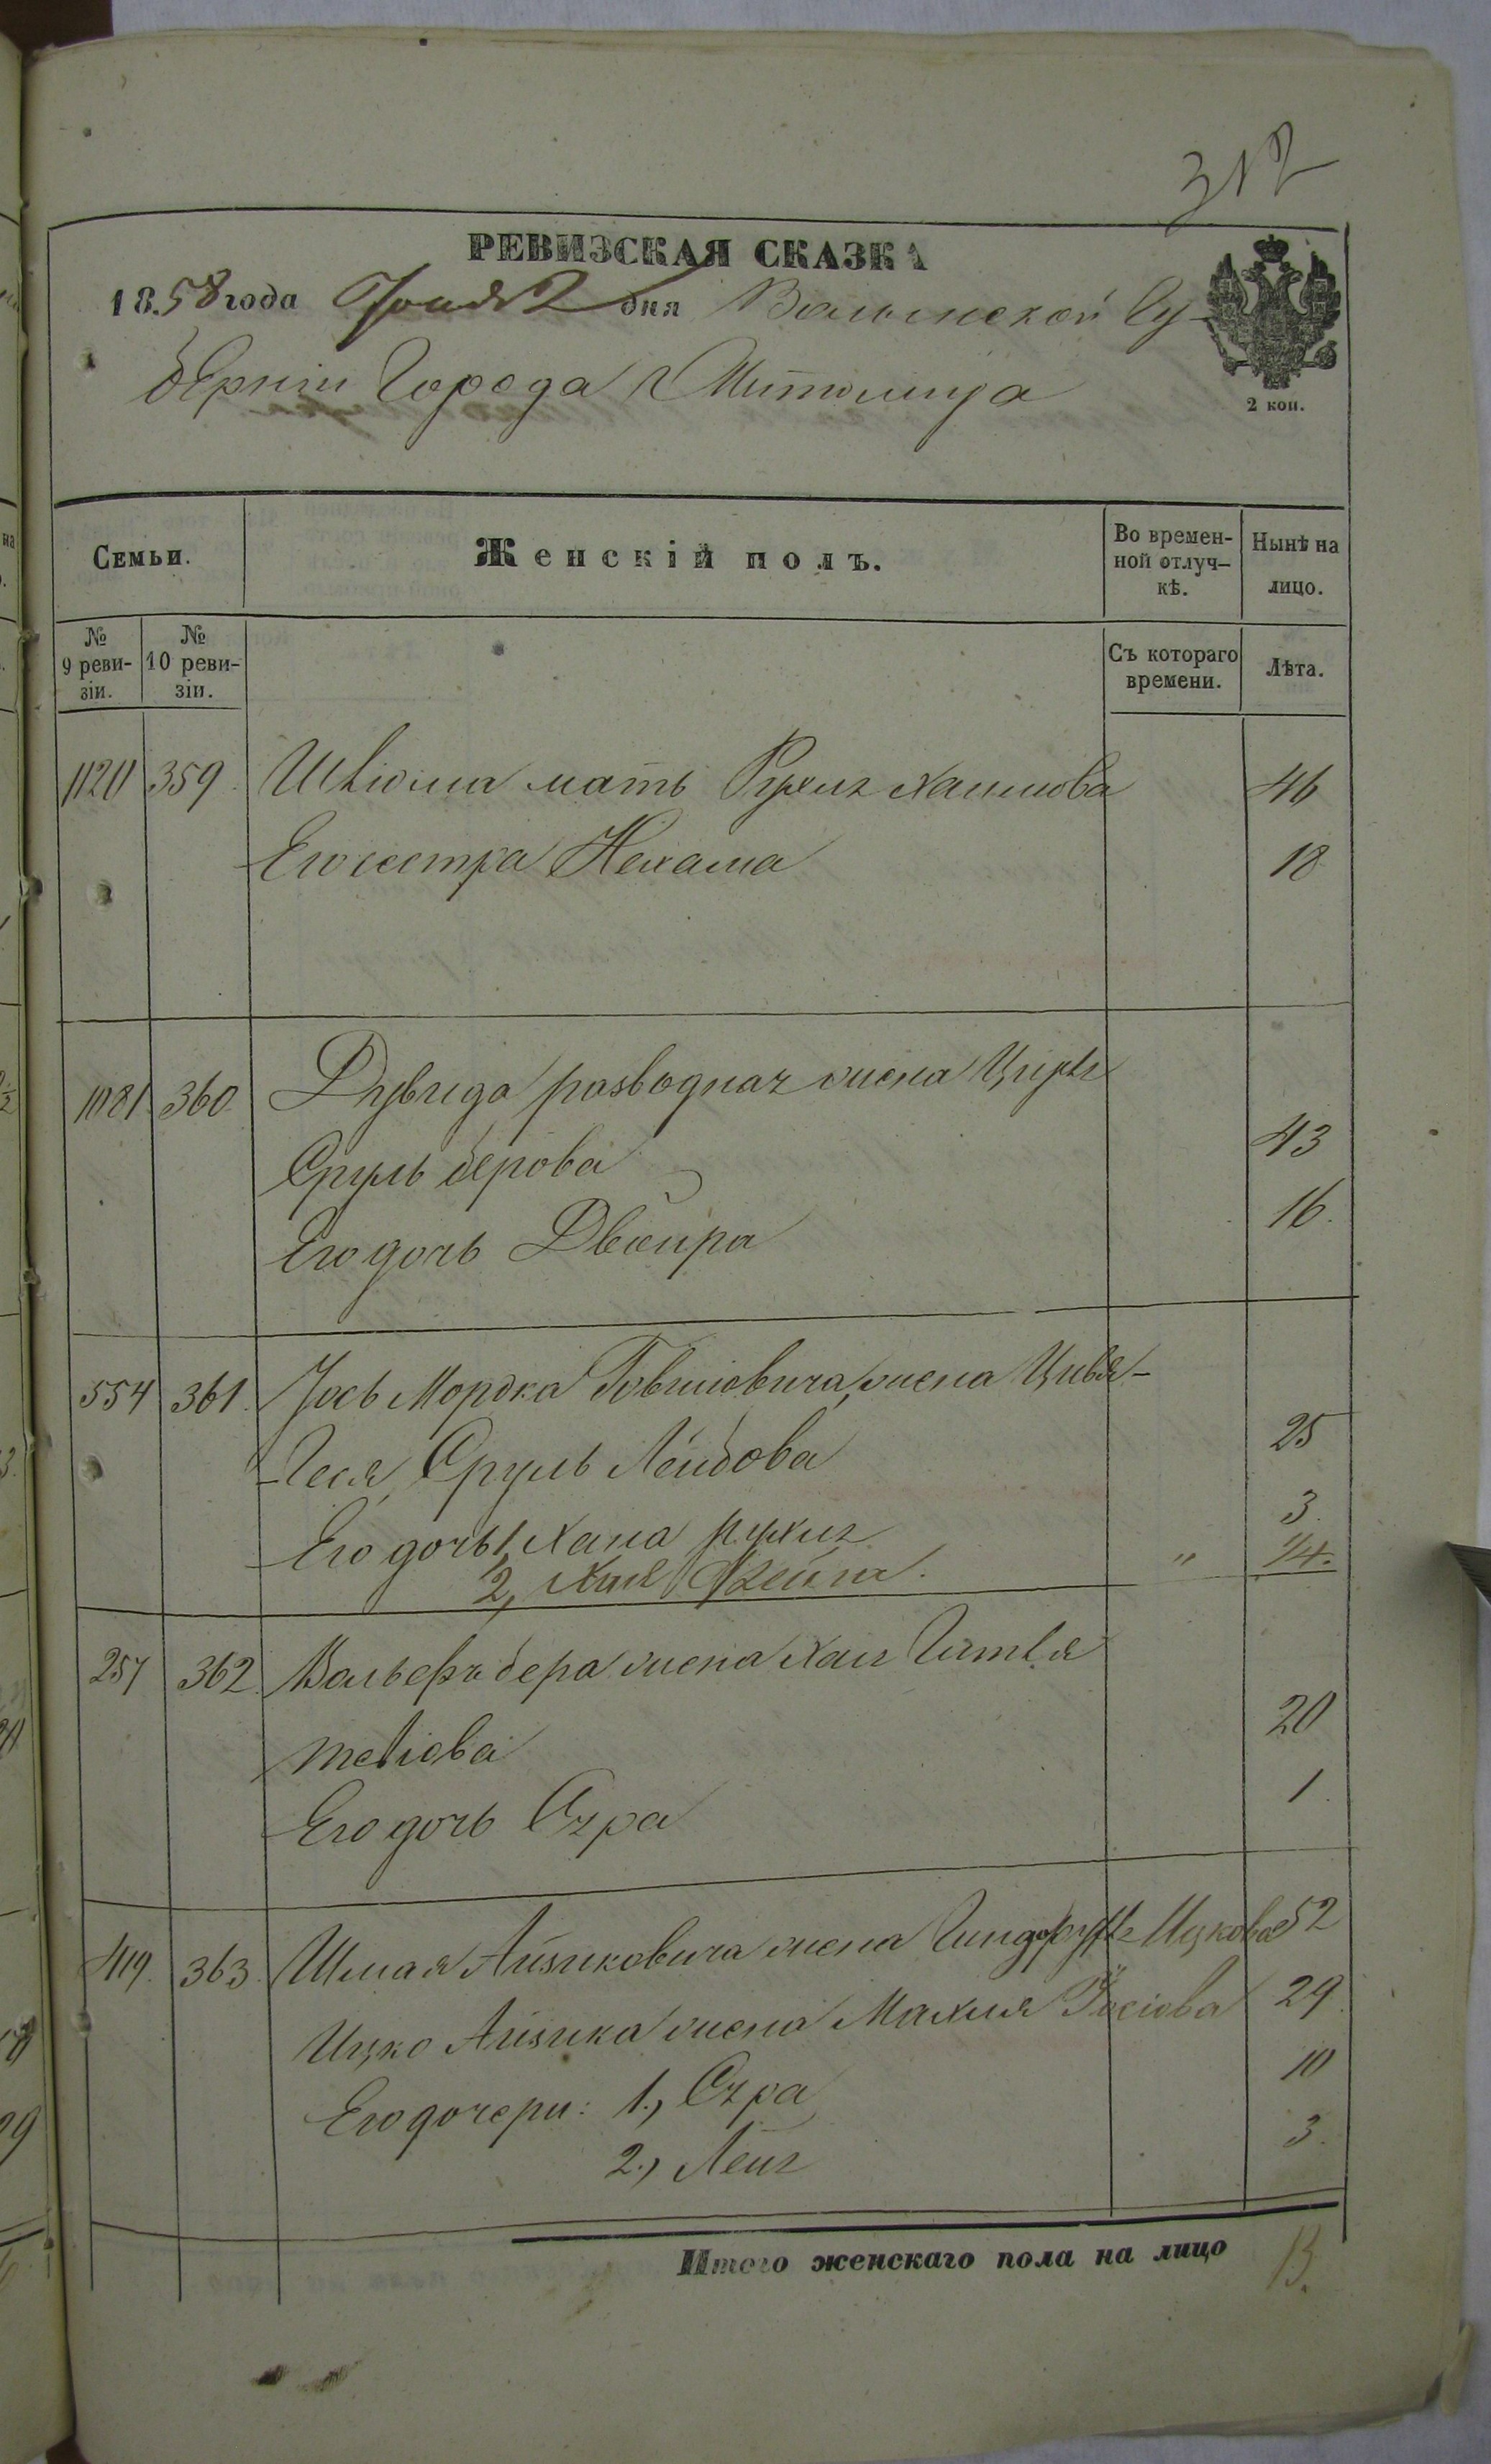 312
РЕВИЗСКАЯ СКАЗКА
1858 года Іюня 2 дня Волынской Гу-
берніи Города Житомира
2 коп.
Семьи.
Женскій полъ.
Во времен-
ной отлуч-
кѣ.
Нынѣ на
лицо.
№
9 реви-
зіи.
№
10 реви-
зіи.
Съ котораго
времени.
Лѣта.
1120 359. мать Рухля Хаимова 46
Его сестра Нехама 18
1081. 360. Давида разводная жена
Сруль Берова 43
Его дочь Двейра 16.
554 361. Іось Мордка Говшіовича, жена Цивья-
Геся, Сруль Лейбова 25
Его дочь 1, Хана Рухля 3.
2, Хая Фейга. " 1/4.
257 362. Вольфъ Бера жена Хая Гитля
20
Его дочь Сура 1.
419. 363. Шмая Айзиковича жена Ицкова 52
Ицко Айзика жена Махля Іосіова 29.
Его дочери: 1., Сура 10
2., Лея 3.
Итого женскаго пола на лицо 13.